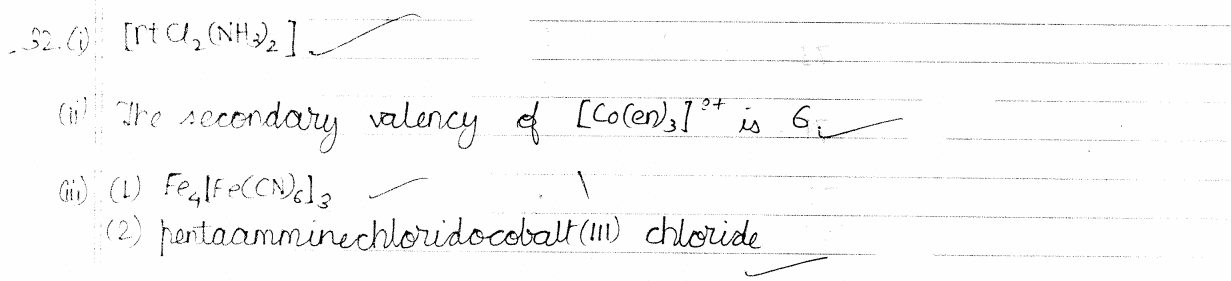 32. (i) [Pt Cl2 (NH3)2]
(ii) The secondary valency of [Co(en)3]3+ is 6.
(iii) (1) Fe4[Fe(CN)6]3
(2) pentaamminechloridocobalt(III) chloride